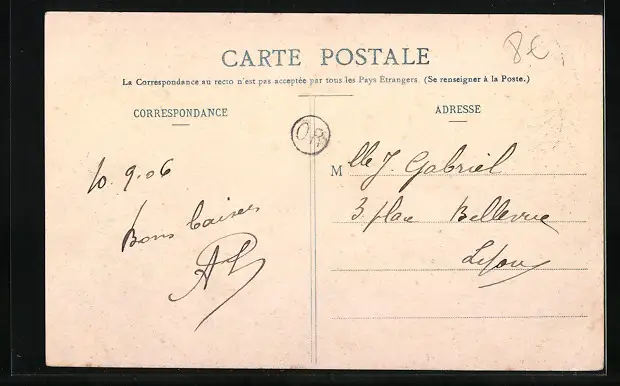 8€
CARTE POSTALE
La Correspondance au recto n'est pas acceptée par tous les Pays Etrangers. (Se renseigner à la Poste.)
CORRESPONDANCE
ADRESSE
10.9.06
Bons baisers
Mlle J. Gabriel
3 place Bellevue
Lyon